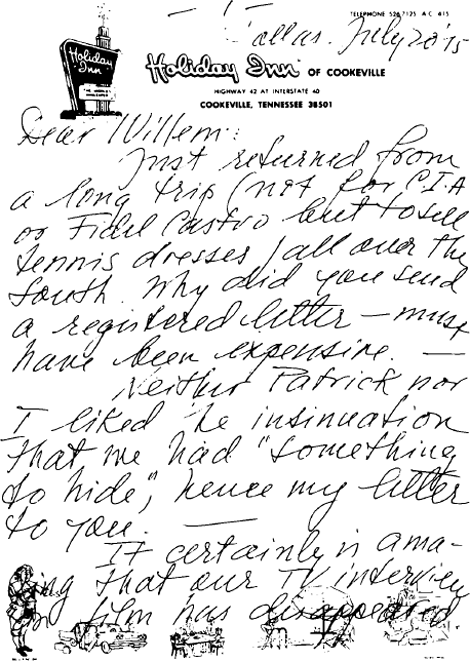 TELEPHONE 526-7125 A C 615
Dallas. July 20 '75
Holiday Inn
Holiday Inn OF COOKEVILLE
HIGHWAY 42 AT INTERSTATE 40
COOKEVILLE, TENNESSEE 38501
Dear Willem:
Just returned from
a long trip (not for C.I.A
or Fidel Castro but to sell
tennis dresses) all over the
South. Why did you send
a registered letter – must
have been expensive. —
Neither Patrick nor
I liked he insinuation
that we had "something
to hide", hence my letter
to you. —
It certainly is ama-
ing that our TV interview
film has disappeared